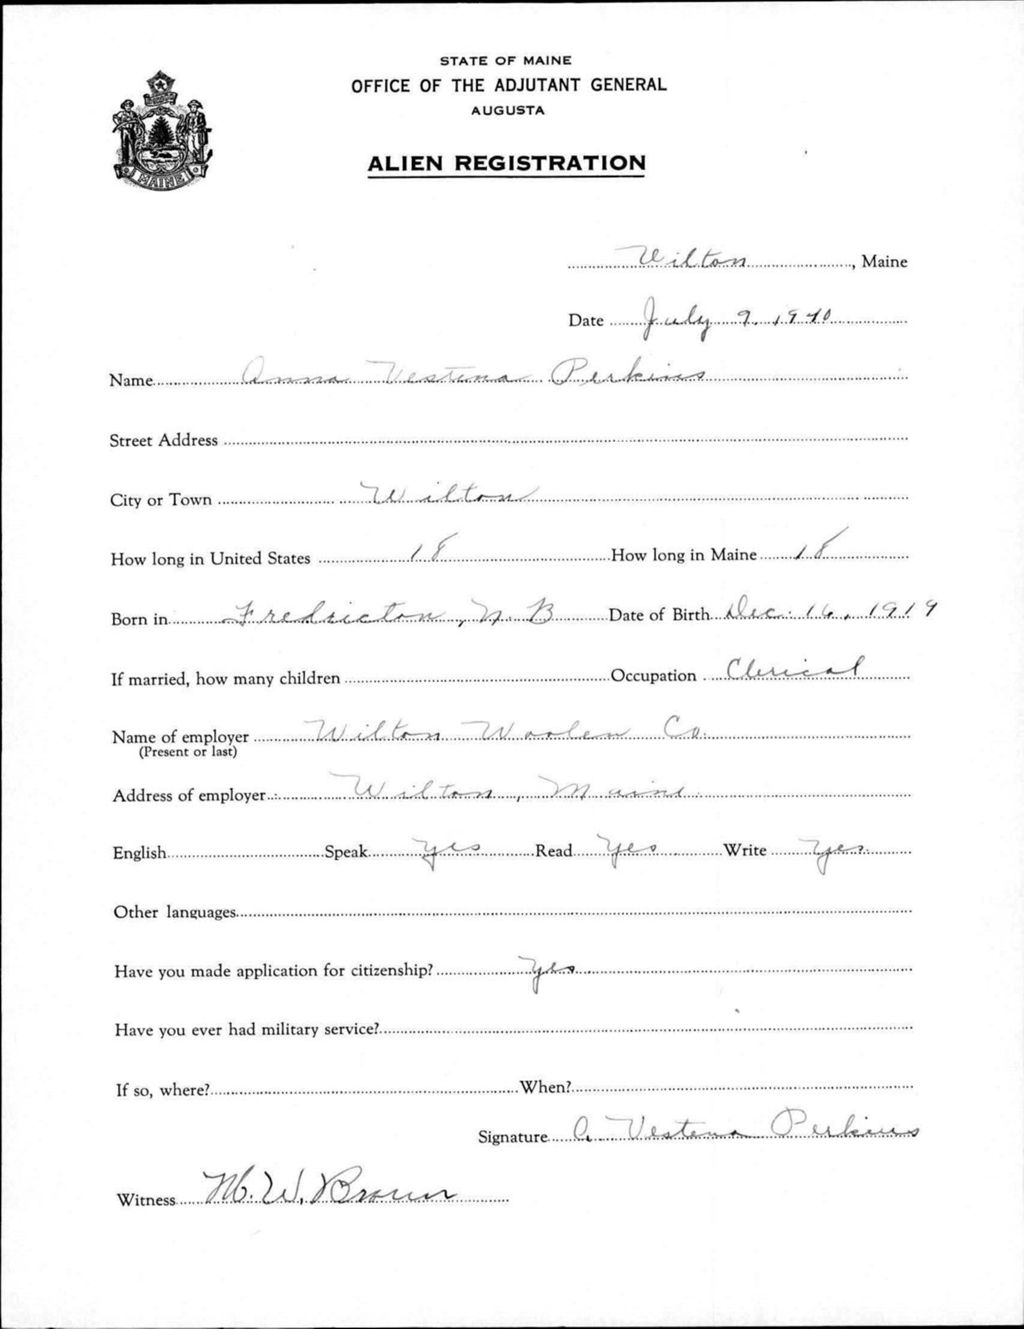 STATE OF MAINE
OFFICE OF THE ADJUTANT GENERAL
AUGUSTA
ALIEN REGISTRATION
MAINE
Wilton, Maine
Date July 9, 1940
Name Anna Vestena Perkins
Street Address
City or Town Wilton
How long in United States 18 How long in Maine 18
Born in Fredricton, N. B Date of Birth Dec. 16, 1919
If married, how many children Occupation Clerical
Name of employer Wilton Woolen Co.
(Present or last)
Address of employer Wilton, Maine
English Speak yes Read yes Write yes
Other languages
Have you made application for citizenship? yes
Have you ever had military service?
If so, where? When?
Signature A. Vestena Perkins
Witness M. W. Brown